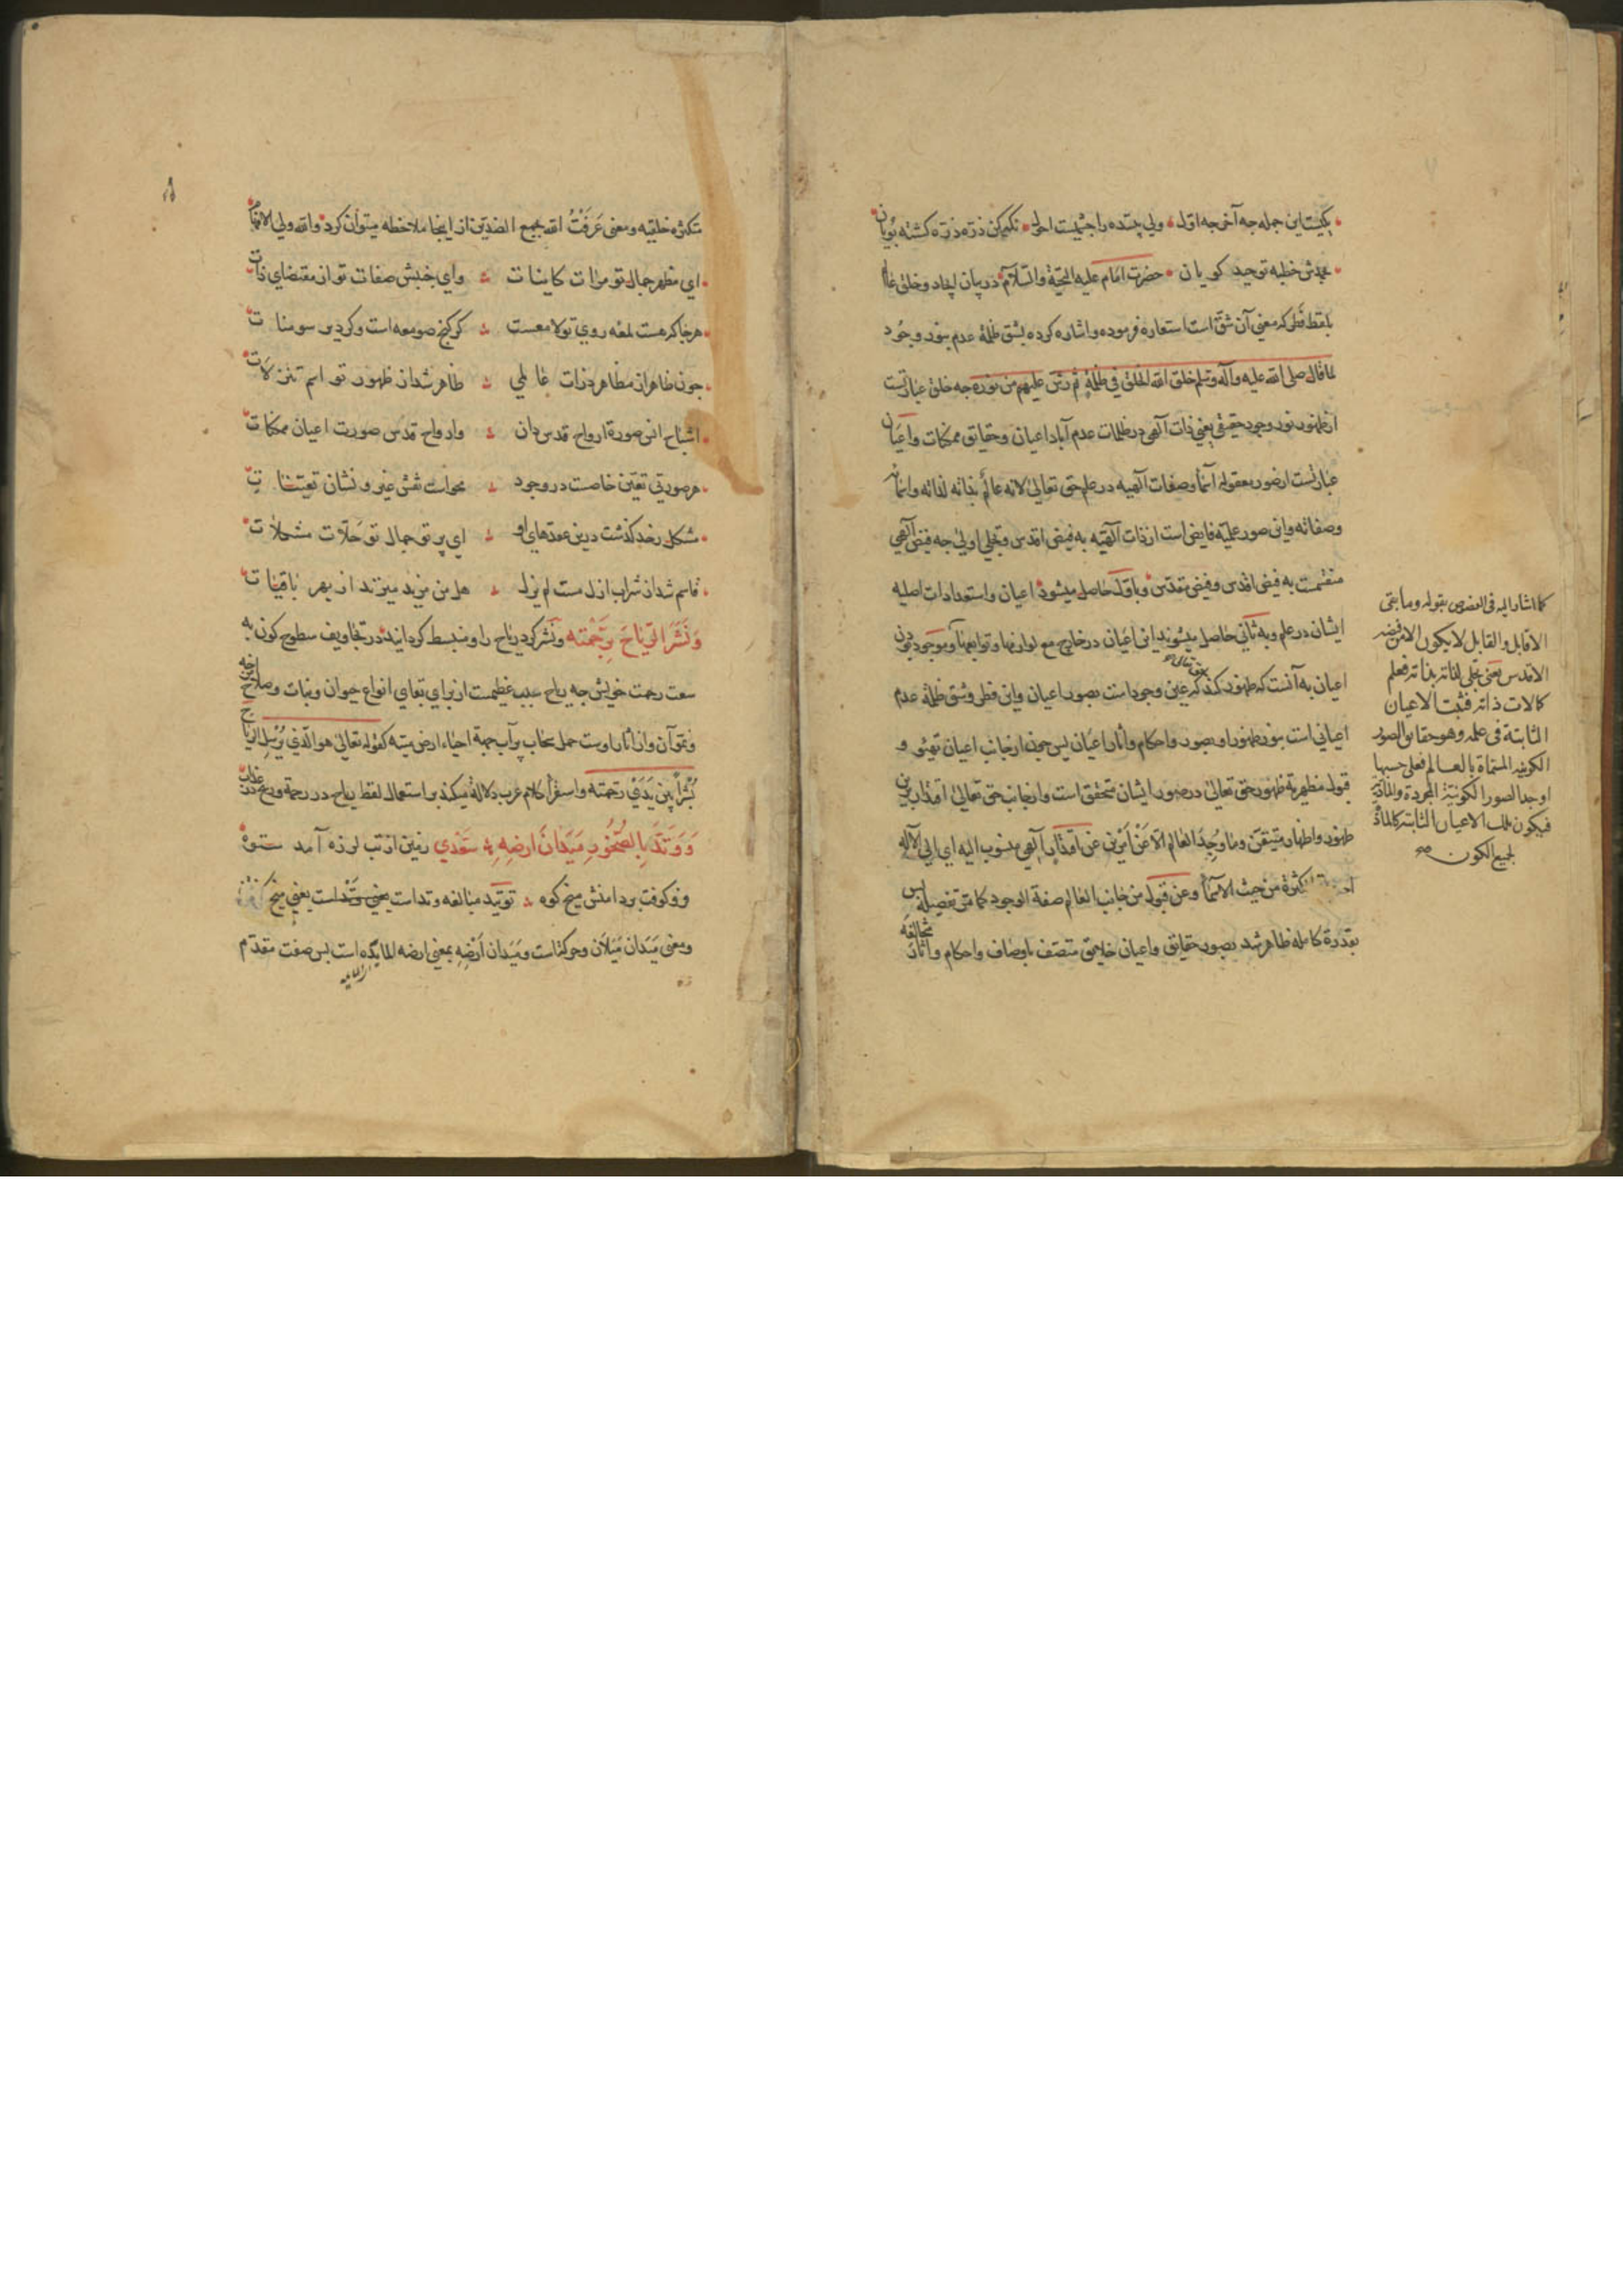 یکیست این جمله چه آخر چه اول ولی بیننده را چشمیست احول نکه کن ذره ذره کشته پویان
بحمدش خطبه توحید کویان حضرت امام علیه التحیة والسلام در بیان ایجاد و خلق عالم
بلفظ فطر که معنی آن شق است استعاره فرموده و اشاره کرده بشق ظلمة عدم بنور وجود
کما قال صلی الله علیه وآله وسلم خلق الله الخلق فی ظلمة ثم رش علیهم من نوره چه خلق عبارتست
از ظهور نور وجود حقیقی یعنی ذات آلهی در ظلمات عدم آباد اعیان و حقایق ممکنات و اعیان
عبارتست از صور معقوله اسما و صفات آلهیه در علم حق تعالی لانه عالم بذاته لذاته واسمائه
وصفاته واین صور علمیه فایض است از ذات آلهیه به فیض اقدس و تجلی اولی چه فیض آلهی
منقسمست به فیض اقدس و فیض مقدس و باول حاصل میشود اعیان و استعدادات اصلیه
ایشان در علم و به ثانی حاصل میشوند این اعیان در خارج مع لوازمها و توابعها و موجود بودن
اعیان به آنست که ظهور کند که عین وجود است بصور اعیان واین فطر وشق ظلمة عدم
حق تعالی
اعیانی است بنور ظهور او بصور واحکام وآثار اعیان پس چون از جانب اعیان تهیئو و
قبول مظهریة ظهور حق تعالی در صور ایشان متحقق است واز جانب حق تعالی اقتدار بر این
ظهور و اظهار متیقن وما وجد العالم الا عن امرین عن اقتدار آلهی منسوب الیه ای الی الاله
کثرة من حیث الاسما وعن قبول من جانب العالم صفة الوجود کما مر تفصیله پس
بقدرة کامله ظاهر شد بصور حقایق واعیان خلایق متصف باوصاف واحکام وآثار
متخالفه
کما اشار الیه فی الفصوص بقوله وما بقی
الا قابل والقابل لا یکون الا من فیضه
الاقدس یعنی تجلی لذاته بذاته فعلم
کمالات ذاته فثبت الاعیان
الثابتة فی علمه وهو حقایق الصور
الکونیه المسماة بالعالم فعلی حسبها
اوجد الصور الکونیة المجردة والمادیة
فیکون تلک الاعیان الثابتة کالمادة
لجمیع الکون
متکثره خلقیه ومعنی عرفت الله بجمع الضدین از اینجا ملاحظه میتوان کرد والله ولی الانعام
ای مظهر جمال تو مرات کاینات وای جنبش صفات تو از مقتضای ذات
هر جا که هست لمعه روی تو لامعست کر کنج صومعه است وکر دیر سومنات
چون ظاهر از مظاهر ذرات عالمی ظاهر شد از ظهور تو اسم تنزلات
اشباح انس صورة ارواح قدس دان وارواح قدس صورت اعیان ممکنات
هر صورتی تعین خاصست در وجود محوات نقش غیر و نشان تعینات
مشکل رخد کذشت درین عقدهای او ای پرتو جمال تو حلات مشکلات
قاسم شد از شراب ازل مست لم یزل هل من مزید میزند از بهر باقیات
وَنَشَرَ الرِّیَاحَ بِرَحْمَتِه ونشر کرد ریاح را و منبسط کردانید در تجاویف سطوح کون به
سعت رحمت خویش چه ریاح سبب عظیمست از برای بقای انواع حیوان ونبات وصلاح امزجه
ونمو آن واز آثار اوست حمل سحاب پر آب بجهة احیاء ارض میته کقوله تعالی هو الذی یرسل الریاح
بُشْراً بین یَدَیْ رحمته واستقرأ کلام عرب دلالة میکند بر استعمال لفظ ریاح در رحمة وریح در عذاب
وَوَتَّدَ بِالصُّخُورِ مَیَدَانَ ارضِهِ سعدی زمین از تب لرزه آمد ستوه
فرو کوفت بر دامنش میخ کوه توتید مبالغه وتداست یعنی میخ
ومعنی میدان میلان وحرکتاست ومیدان ارضه بمعنی ارضه المایده است پس صفت مقدم